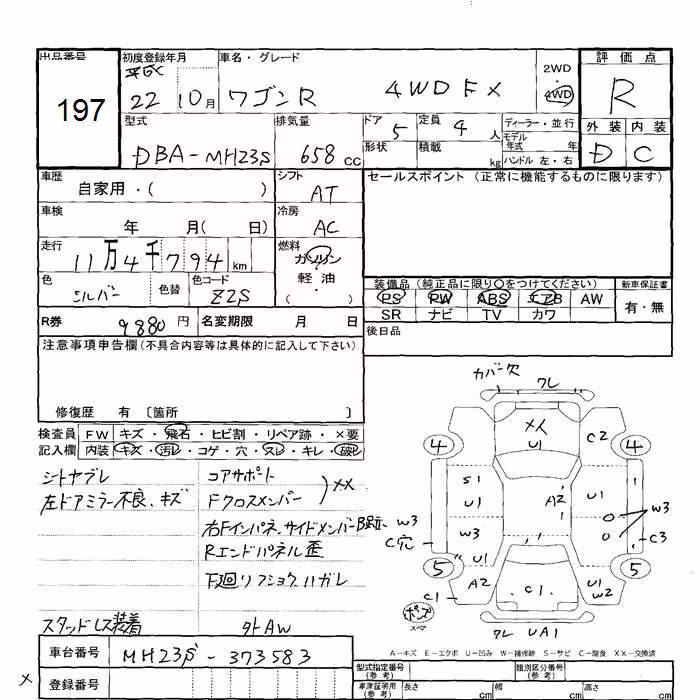 出品番号 初度登録年月 車名・グレード 2WD 評価点
平成 22 10月 ワゴンR 4WD FX 4WD R
197
型式 排気量 ドア 5 定員 4人 ディーラー・並行 外装 内装
DBA-MH23S 658cc 形状 積載 kg モデル年式 年 D C
ハンドル 左・右
車歴 シフト セールスポイント(正常に機能するものに限ります)
自家用・( ) AT
車検 冷房
年 月( 日) AC
走行 燃料
11万4千794km ガソリン
色 色替 色コード 軽・油
シルバー Z2S ・( )
装備品(純正品に限り○をつけてください) 新車保証書
PS PW ABS エアB AW 有・無
SR ナビ TV カワ
R券 9880円 名変期限 月 日 後日品
注意事項申告欄(不具合内容等は具体的に記入して下さい)
修復歴 有 〔箇所 〕
検査員 FW キズ・飛石・ヒビ割・リペア跡・×要
記入欄 内装 キズ・汚レ・コゲ・穴・スレ・キレ・破レ
シートヤブレ コアサポート
左ドアミラー不良、キズ Fクロスメンバー )XX
右Fインパネ,サイドメンバー
Rエンドパネル歪
下廻リフショク,ハガレ
スタッドレス装着 外AW
カバー欠 ワレ
XX U1 C2
4 4
S1 U1 A2 U1
W3 W3 W3
C穴 C3
U1
5 5
A2 C1 U1 W2
C1
ワレ UA1
A-キズ E-エクボ U-凹み W-補修跡 S-サビ C-腐食 XX-交換済
車台番号 MH23S-373583
登録番号
型式指定番号(参考) 類別区分番号(参考)
車庫証明用(参考) 長さ cm 幅 cm 高さ cm